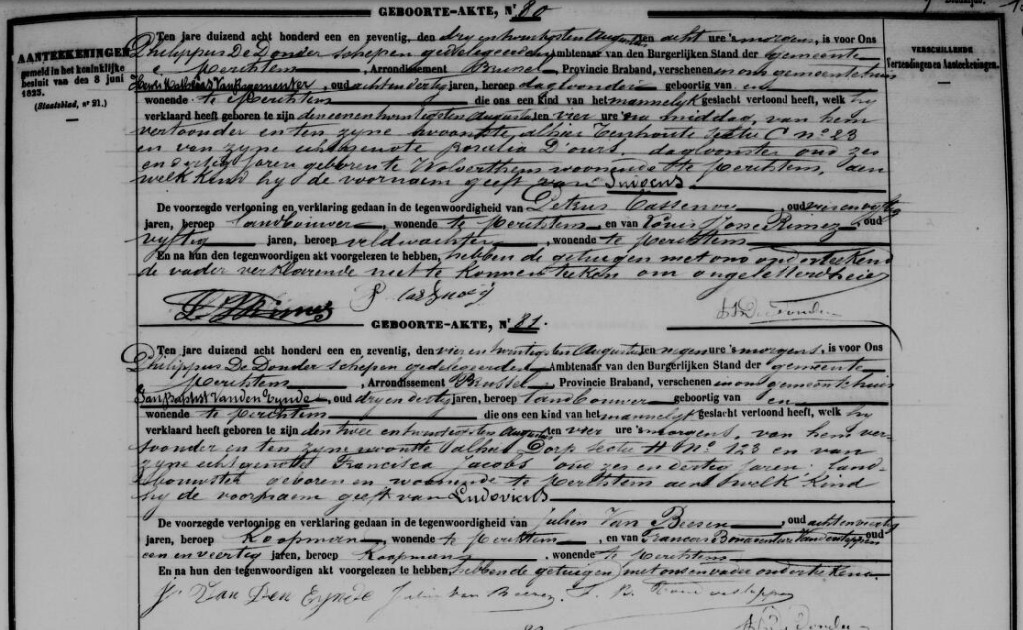 GEBOORTE-AKTE, Nr 80
AANTEEKENINGEN
gemeld in het koninklijke
besluit van den 8 juni
1823.
(Staatsblad, nr 21.)
VERSCHILLENDE
Verzendingen en Aanteekeningen.
Ten jare duizend acht honderd een en zeventig, den dry en twintigsten Augusti ten acht ure 's morgens, is voor Ons
Philippus De Donder schepen gedelegeerden Ambtenaar van den Burgerlijken Stand der gemeente
Merchtem, Arrondissement Brussel, Provincie Braband, verschenen in ons gemeentehuis
oud acht en dertig jaren, beroep dagloonder geboortig van en
wonende te Merchtem die ons een kind van het mannelyk geslacht vertoond heeft, welk hy
verklaard heeft geboren te zijn den eenen twintigsten Augusti ten vier ure na middag, van hem
vertoonder en ten zyne woonste, alhier sectie C no 23
en van zyne echtgenote Rosalia D'ours dagloonster oud zes
en dertig jaren geboren te Wolverthem woonende te Merchtem, aen
welk kind hy de voornaem geeft van
De voorzegde vertooning en verklaring gedaan in de tegenwoordigheid van Petrus, oud
jaren, beroep landbouwer, wonende te Merchtem en van Louis Jose, oud
vyftig jaren, beroep veldwachter, wonende te Merchtem
En na hun den tegenwoordigen akt voorgelezen te hebben, hebben de getuigen met ons onderteekend
de vader verklarende niet te konnen teeken om ongeletterdheid
GEBOORTE-AKTE, Nr 81.
Ten jare duizend acht honderd een en zeventig, den vier en twintigsten Augusti ten negen ure 's morgens, is voor Ons
Philippus De Donder schepen gedelegeerden Ambtenaar van den Burgerlijken Stand der gemeente
Merchtem, Arrondissement Brussel, Provincie Braband, verschenen in ons gemeentehuis
Jan Baptist Vanden Eynde, oud dry en dertig jaren, beroep landbouwer geboortig van en
wonende te Merchtem die ons een kind van het mannelyk geslacht vertoond heeft, welk hy
verklaard heeft geboren te zijn den twee en twintigsten Augusti ten vier ure 's morgens, van hem ver-
toonder en ten zyne woonste alhier Dorp sectie H No 123 en van
zyne echtgenote Francisca Jacobs oud zes en dertig jaren land-
bouwster geboren en woonende te Merchtem aen welk kind
hy de voornaem geeft van Ludovicus
De voorzegde vertooning en verklaring gedaan in de tegenwoordigheid van Julien Van, oud acht en veertig
jaren, beroep Koopman, wonende te Merchtem, en van Francois Bonaventure, oud
een en veertig jaren, beroep Koopman, wonende te Merchtem
En na hun den tegenwoordigen akt voorgelezen te hebben, hebben de getuigen met ons en vader onderteekend
J. Van Den Eynde